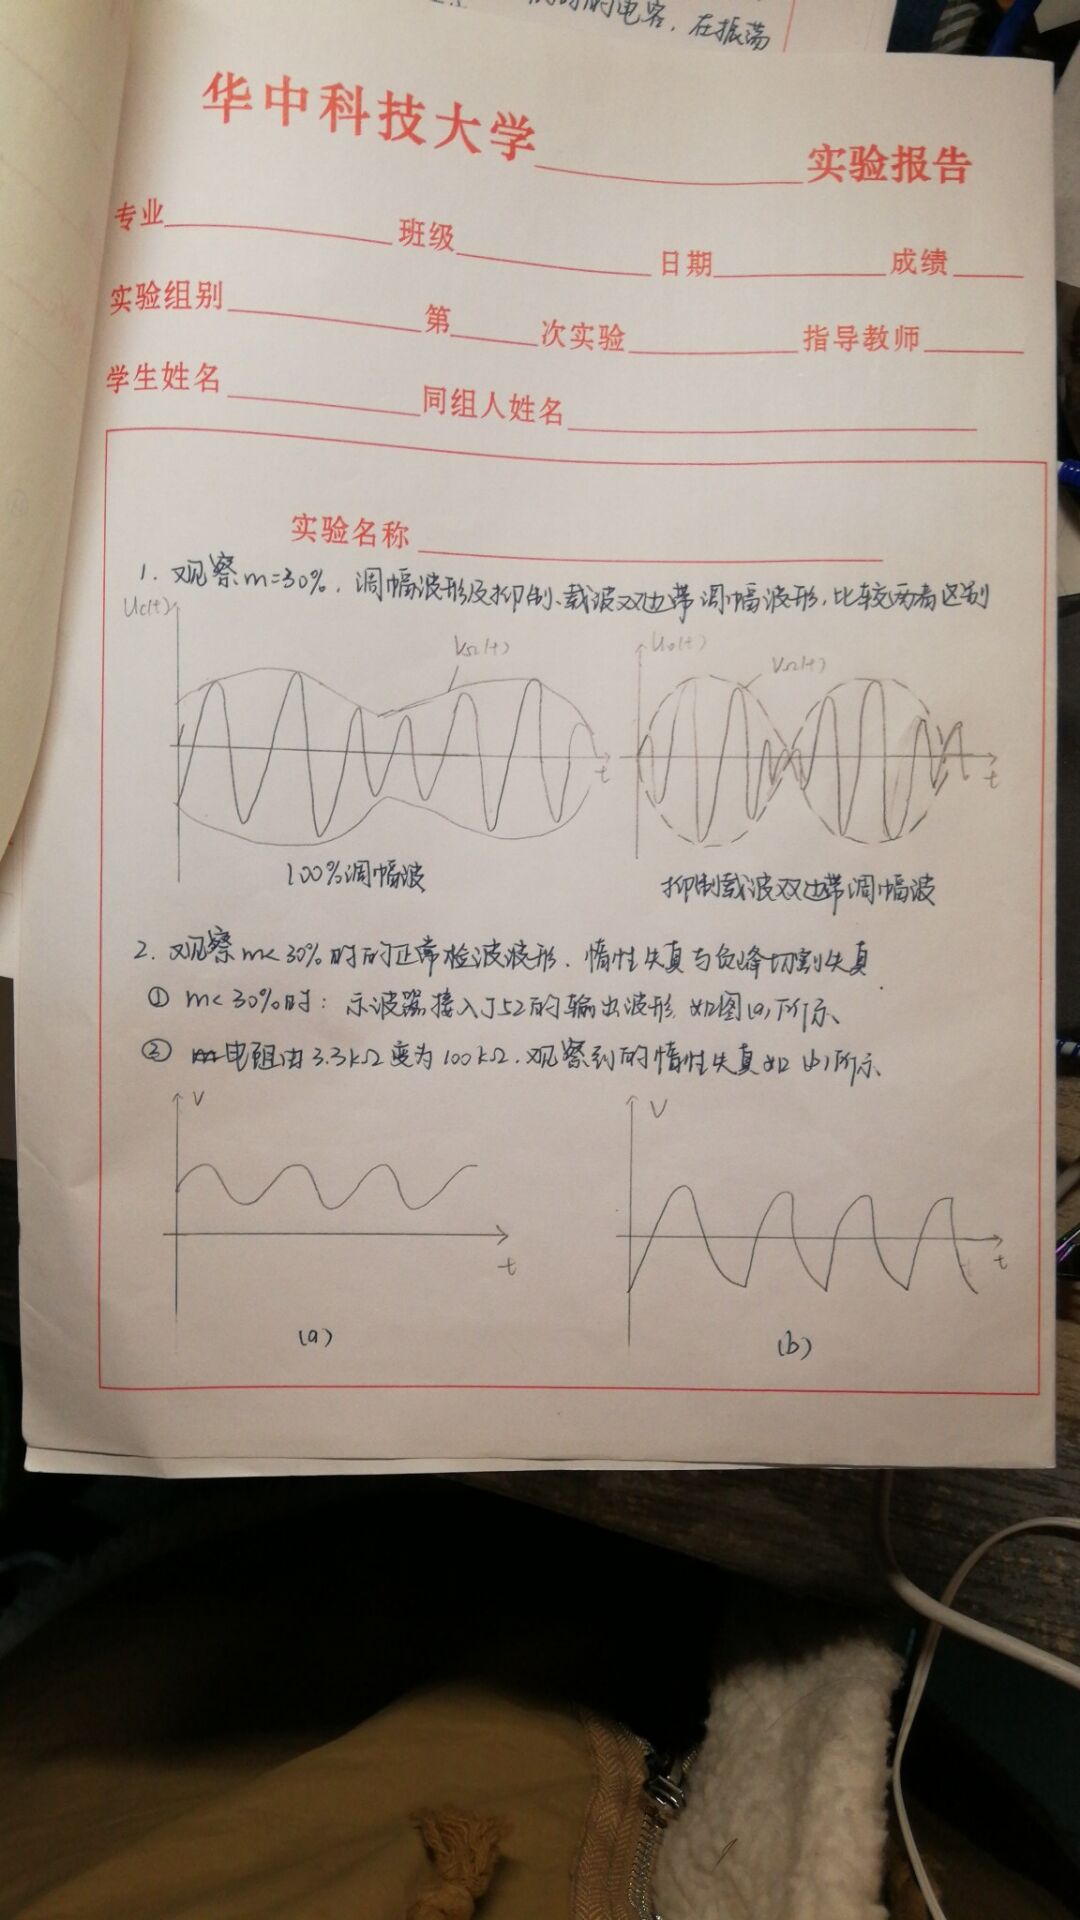 的电容，在振荡
华中科技大学 实验报告
专业 班级 日期 成绩
实验组别 第 次实验 指导教师
学生姓名 同组人姓名
实验名称
1. 观察m=30%，调幅波形及抑制载波双边带调幅波形，比较两者区别
Uc(t) VΩ(t) Uo(t) VΩ(t)
t t
100%调幅波 抑制载波双边带调幅波
2. 观察m<30%时的正常检波波形、惰性失真与负峰切割失真
① m<30%时：示波器接入J52的输出波形，如图(a)所示、
② 电阻由3.3kΩ变为100kΩ，观察到的惰性失真如(b)所示、
V V
t t
(a) (b)